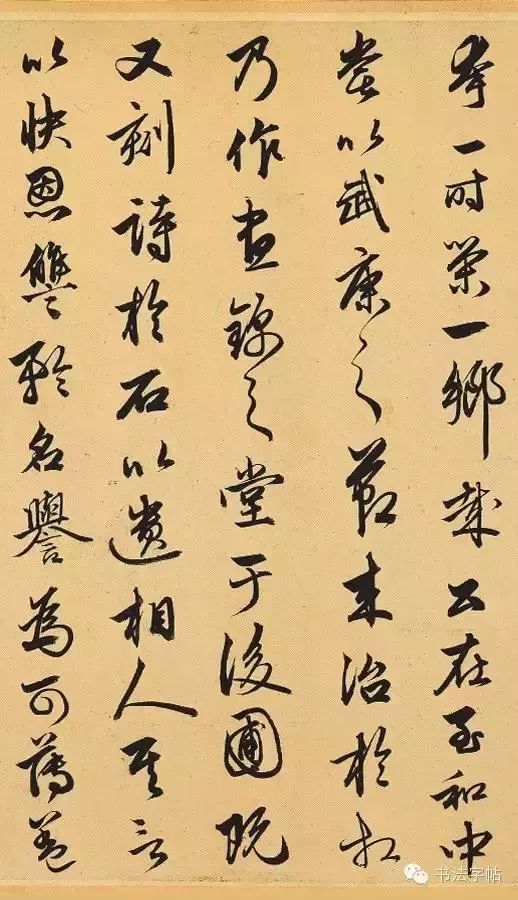 夸一时荣一鄉哉公在至和中
嘗以武康之節来治於相
乃作昼錦之堂于後圃既
又刻詩於石以遺相人其言
以快恩讐矜名譽為可薄蓋
书法字帖